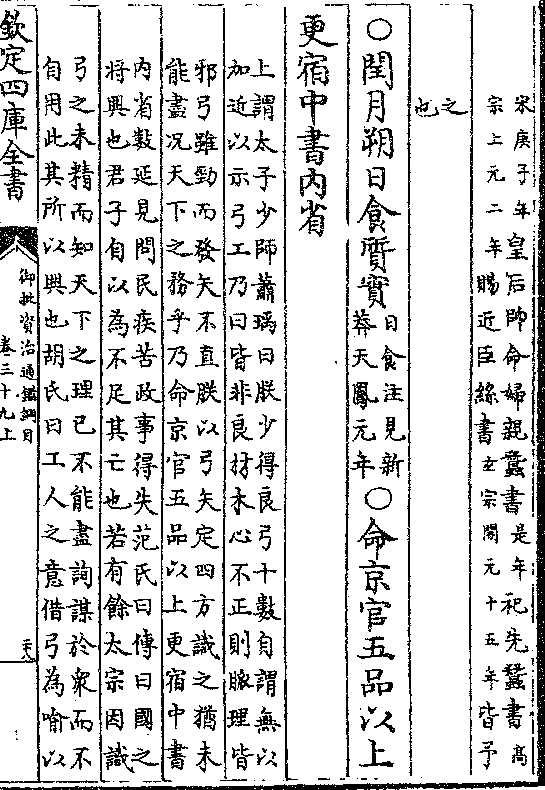 宋庚子年皇后帥命婦親蠶書是年祀先蠶書高
宗上元二年賜近臣絲書玄宗開元十五年皆予
之
也
〇閏月朔日食質實日食注見新莽天鳳元年〇命京官五品以上
更宿中書内省
上謂太子少師蕭瑀曰朕少得良弓十數自謂無以
加近以示弓工乃曰皆非良材木心不正則脉理皆
邪弓雖勁而發矢不直朕以弓矢定四方識之猶未
能盡况天下之務乎乃命京官五品以上更宿中書
内省數延見問民疾苦政事得失范氏曰傳曰國之
將興也君子自以為不足其亡也若有餘太宗因識
弓之未精而知天下之理已不能盡詢謀於衆而不
自用此其所以興也胡氏曰工人之意借弓為喻以
欽定四庫全書
御批資治通鑑綱目
卷三十九上